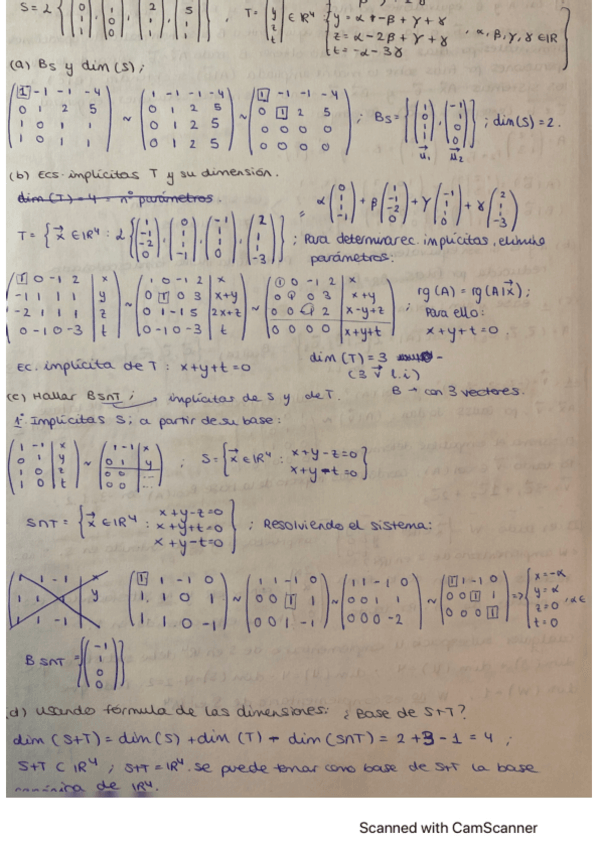 S = L { (0 1 1 1), (1 1 0 0), ( 2 1 1), ( 5 1 1) }, T = { (x y z t) ∈ IR⁴
y = α + -β + γ + γ
z = α - 2β + γ + γ , α, β, γ, γ ∈ IR
t = -α - 3γ
(a) Bs y dim (S);
(1 -1 -1 -4 / 0 1 2 5 / 1 0 1 1 / 1 0 1 1) ~ (1 -1 -1 -4 / 0 1 2 5 / 0 1 2 5 / 0 1 2 5) ~ (1 -1 -1 -4 / 0 1 2 5 / 0 0 0 0 / 0 0 0 0) ; Bs = { (1 0 1 1), (-1 1 0 0) } ; dim(S) = 2.
u₁ u₂
(b) ecs. implícitas T y su dimensión.
dim (T) = 4 = nº parámetros.
= α (0 1 1 -1) + β (1 -1 -2 0) + γ (-1 1 1 0) + γ (2 1 1 -3)
T = { x ∈ IR⁴ : L { (1 -1 -2 0), (0 1 1 -1), (-1 1 1 0), (2 1 1 -3) } ; Para determinar ec. implícitas, elimino
parámetros:
(1 0 -1 2 | x / -1 1 1 1 | y / -2 1 1 1 | z / 0 -1 0 -3 | t) ~ (1 0 -1 2 | x / 0 1 0 3 | x+y / 0 1 -1 5 | 2x+z / 0 -1 0 -3 | t) ~ (1 0 -1 2 | x / 0 1 0 3 | x+y / 0 0 -1 2 | x-y+z / 0 0 0 0 | x+y+t) ; rg (A) = rg (A|x);
Para ello:
x+y+t = 0
Ec. implícita de T: x+y+t=0
dim (T) = 3
(3 v l.i)
B → con 3 vectores.
(c) Hallar B S∩T ; implícitas de S y de T.
1º Implícitas S; a partir de su base:
(1 -1 | x / 0 1 | y / 1 0 | z / 1 0 | t) ~ (1 -1 | x / 0 1 | y / 0 0 | ... / 0 0 | ...) ; S = { x ∈ IR⁴ : x+y-z=0
x+y-t=0 }
S∩T = { x ∈ IR⁴ : x+y-z=0
x+y+t=0
x+y-t=0 } ; Resolviendo el sistema:
(1 1 -1 0 / 1 1 0 1 / 1 1 0 -1) ~ (1 1 -1 0 / 0 0 1 1 / 0 0 1 -1) ~ (1 1 -1 0 / 0 0 1 1 / 0 0 0 -2) ~ (1 1 -1 0 / 0 0 1 1 / 0 0 0 1) => { x=-α
y=α
z=0 , α ∈
t=0
B S∩T = { (-1 1 0 0) }
d) Usando fórmula de las dimensiones: ¿Base de S+T?
dim (S+T) = dim (S) + dim (T) - dim (S∩T) = 2 + 3 - 1 = 4 ;
S+T ⊂ IR⁴ ; S+T = IR⁴. Se puede tomar como base de S+T la base
canónica de IR⁴.
Scanned with CamScanner